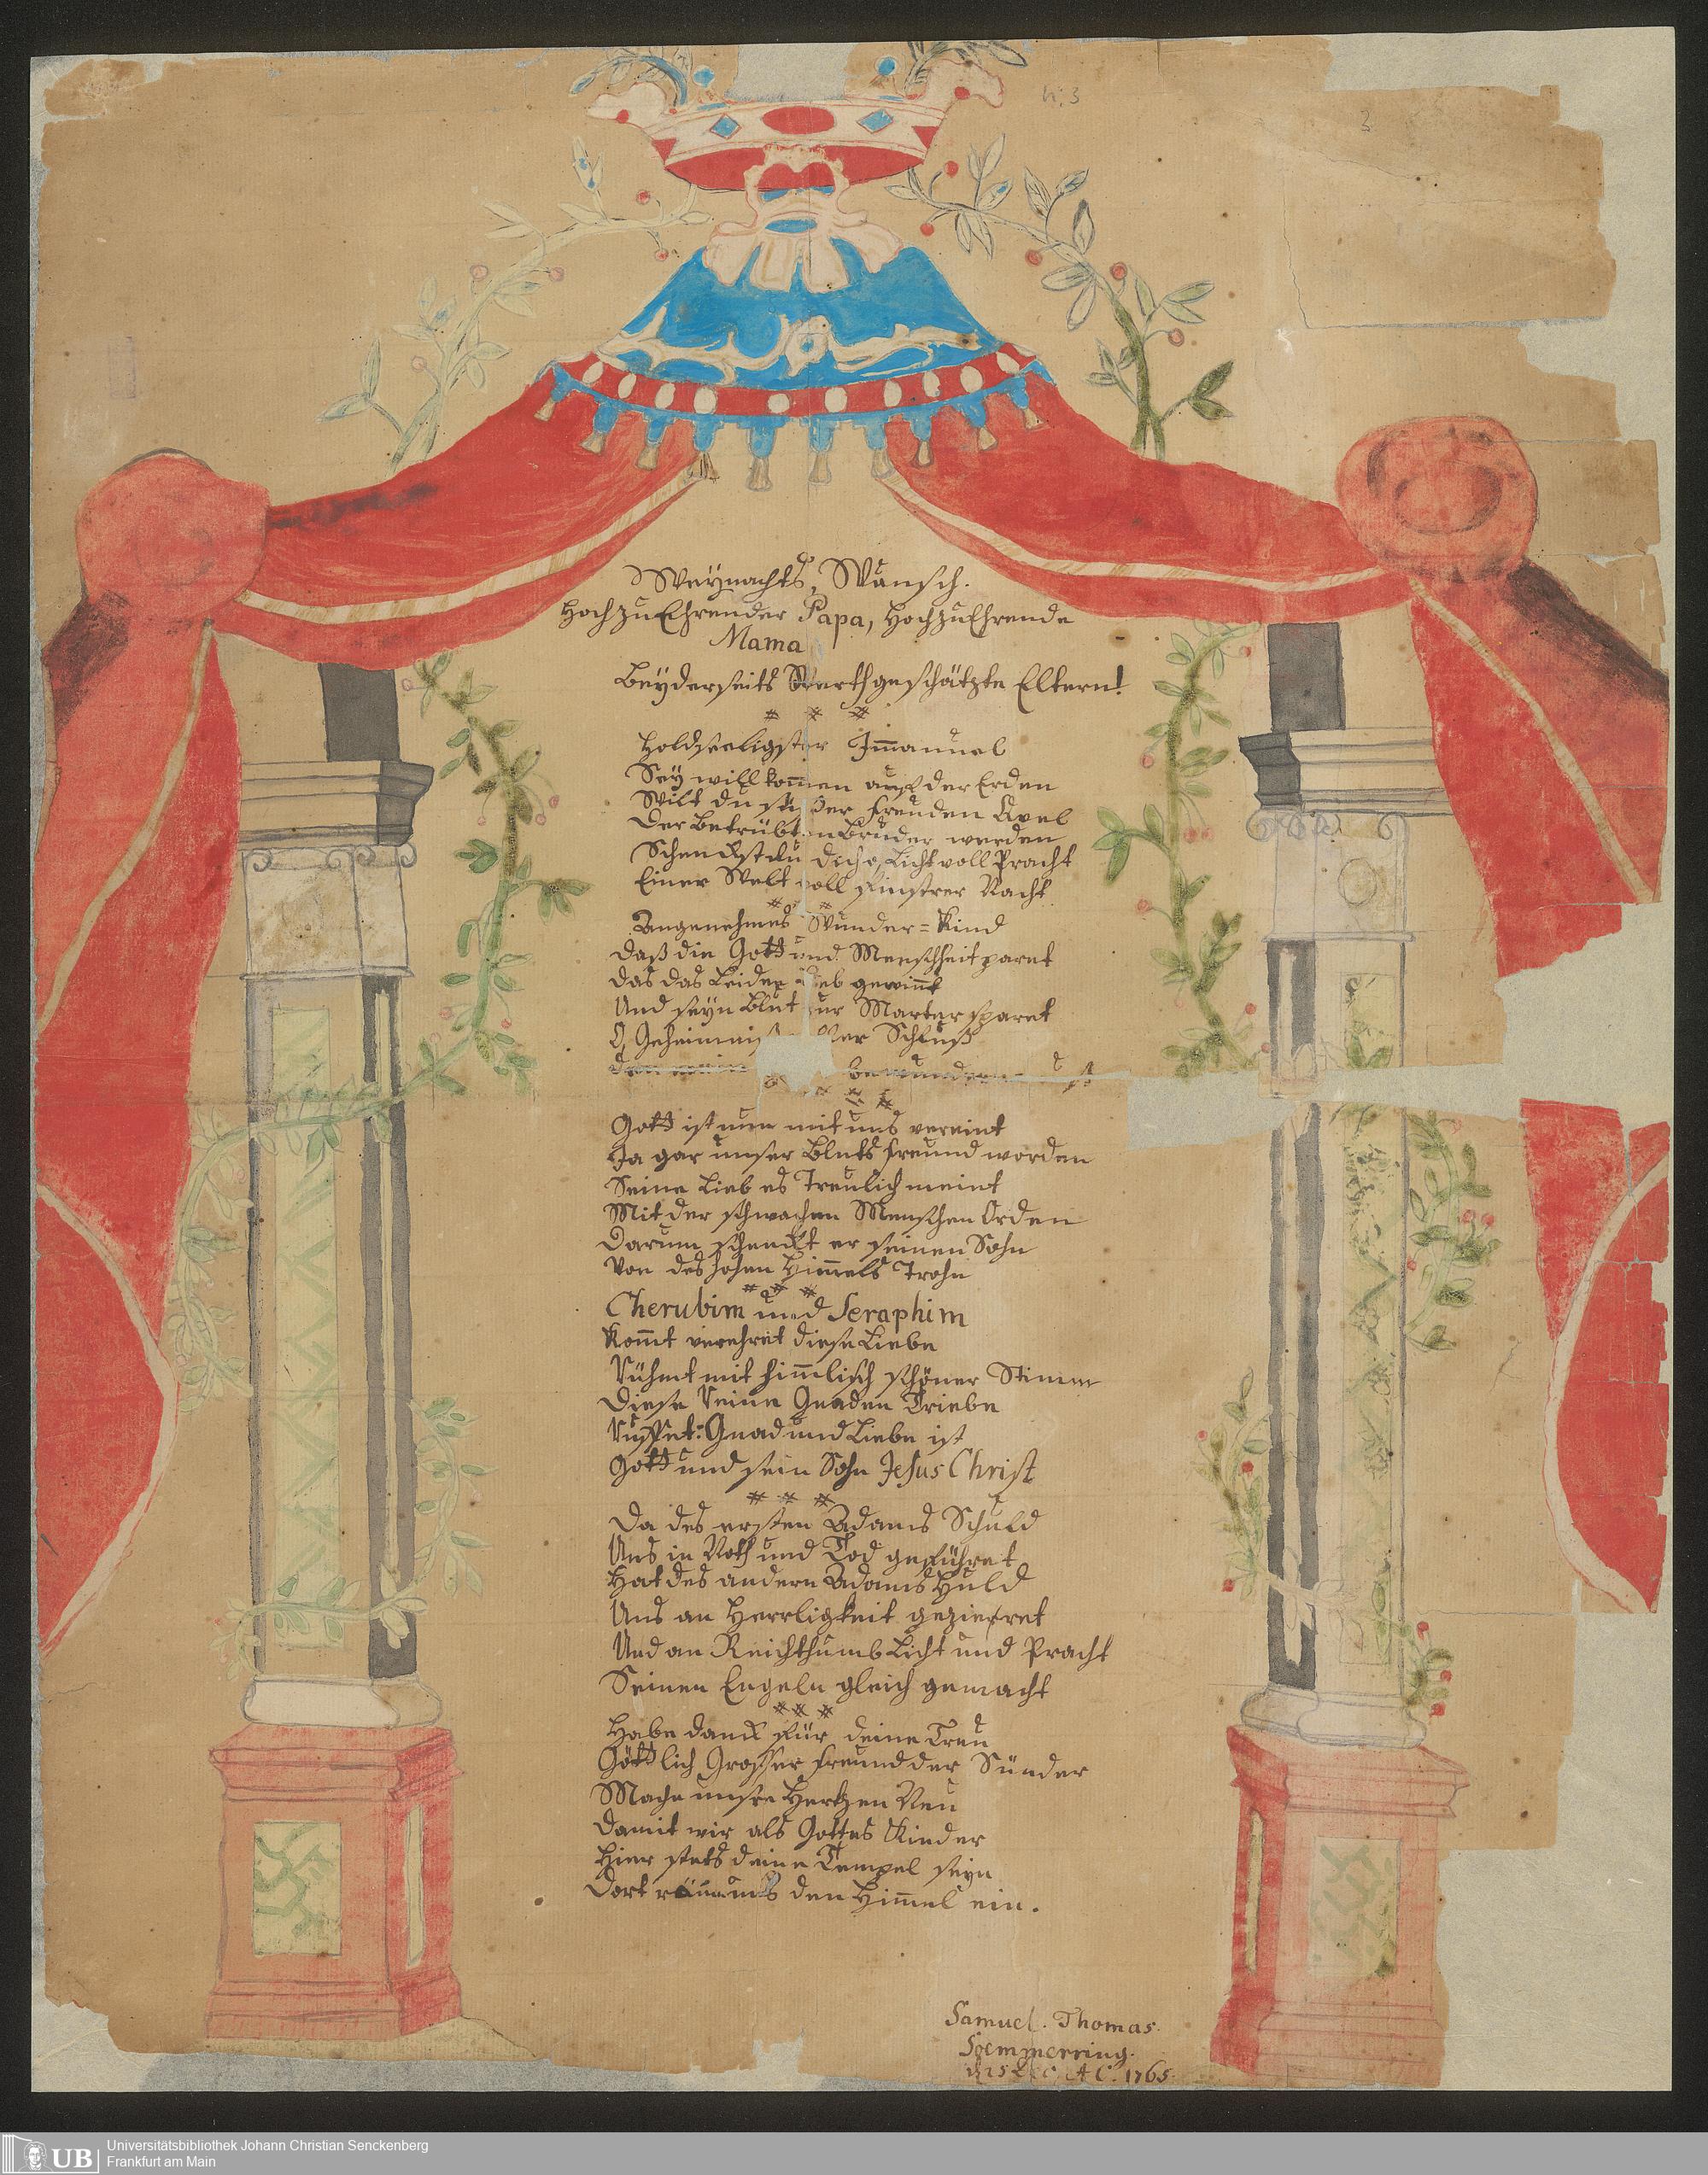 n. 3
3
Weynachts Wunsch.
HochzuEhrender Papa, HochzuEhrende
Mama
Beyderseits Werthgeschätzte Eltern!
# # #
Holdseeligster Im̄anuel
Sey willkom̄en auf der Erden
Wilt du süßer Freuden Quel
Der Betrübten Bruder werden
Schenckst du dich o Licht voll Pracht
Einer Welt voll finstrer Nacht.
# #
Angenehmes Wunder=Kind
Daß die Gott und Menschheit paret
Das das Leiden Lieb gewin̄t
Und seyn Blut zur Marter sparet
O Geheimnis Schluß
bewundern
# # #
Gott ist nun mit uns vereint
Ja gar unser Bluts freund worden
Seine Lieb es Treulich meint
Mit der schwachen Menschen Orden
Darum schenckt er seinen Sohn
Von des hohen Him̄els Trohn
# # #
Cherubim und Seraphim
Kom̄t verehret diese Liebe
Rühmt mit him̄lisch schöner Stimm
Diese Reine Gnaden Triebe
Ruffet: Gnad und Liebe ist
Gott und sein Sohn Jesus Christ
# # #
Da des ersten Adams Schuld
Uns in Noth und Tod geführet
Hat des andern Adams Huld
Uns an Herrligkeit gezierret
Und an Reichthumb Licht und Pracht
Seinen Engeln gleich gemacht
# # #
Habe danck für deine Treu
Göttlich Grosser freund der Sünder
Mache unsre Hertzen Neu
Damit wir als Gottes Kinder
Hier stets deine Tempel seyn
Dort räume uns den Him̄el ein.
Samuel. Thomas.
Soemmerring.
25 Dec: A C. 1765.
UB
Universitätsbibliothek Johann Christian Senckenberg
Frankfurt am Main